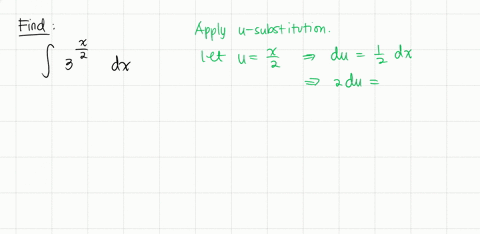 Find:
∫ 3^(x/2) dx
Apply u-substitution.
let u = x/2 ⇒ du = 1/2 dx
⇒ 2du =